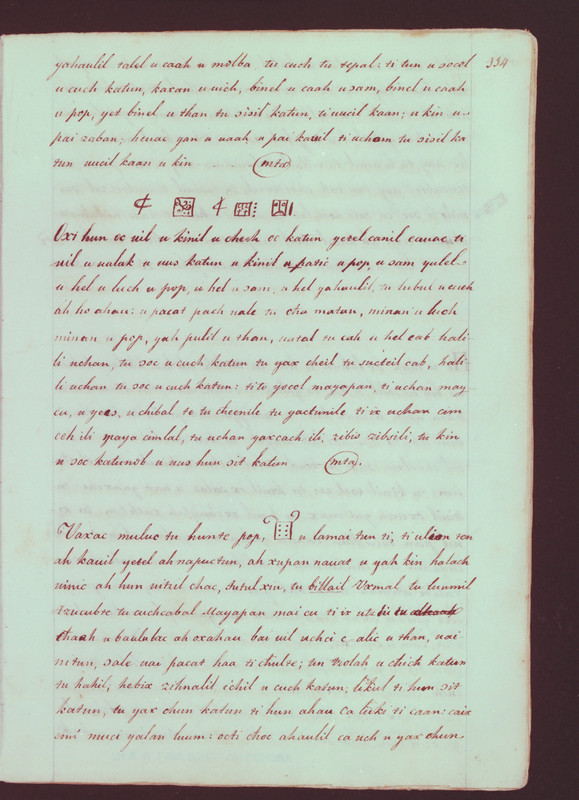 334
yahaulil talel u caah u molba, tu cuch tu tepal: ti tun u socol
u cuch katun, karan u uich, binel u caah u sam, binel u caah
u pop, yet binel u than tu sisil katun, ti uucil kaan; u kin u-
pai zaban; henac gan u uaah u pai kauil ti uchom tu sisil ka
tun uucil kaan u kin (mta)
Oxi hun oc uil u kinil u chech oc katun yetel canil cauac ti
uil u ualak u uus katun u kinil u patic u pop, u sam yulel-
u hel u luch u pop, u hel u sam, u hel yahaulil, tu lubul u cuch
ah ho ahau: u pacat pach nale tu cha matan, minan u luch
minan u pop, yah pulil u than, uatal tu cah u hel cab hali-
li uchan, tu soc u cuch katun tu yax cheil tu sucteil cab, hali-
li uchan tu soc u cuch katun: ti to yocol mayapan, ti uchan may
cu, u yees, u chibal te tu cheenile tu yactunile ti ix uchan cim
ceh ili maya cimlal, tu uchan yaxcach ili, zibis zibsili, tu kin
u soc katunob u uus hun sit katun (mta).
Vaxac muluc tu hunte pop, u lamai tun ti, ti ulsan ten
ah kauil yetel ah napuctun, ah xupan nauat u yah kin halach
uinic ah hun uitzil chac, tutul xiu, tu billail Vxmal tu luumil
tzucubte tu cuchcabal Mayapan mai cu ti ix
u baululac ah oxahau bai uil uchci c alic u than, uai
ti tun, sale uai pacat haa ti chulte; tun tzolah u chich katun
tu hahil, hebix zihnalil ichil u cuch katun, likul ti hun sit
katun, tu yax chun katun ti hun ahau ca ti caan: caix
muci yalan luum: octi choc ahaulil ca uch u yax chun